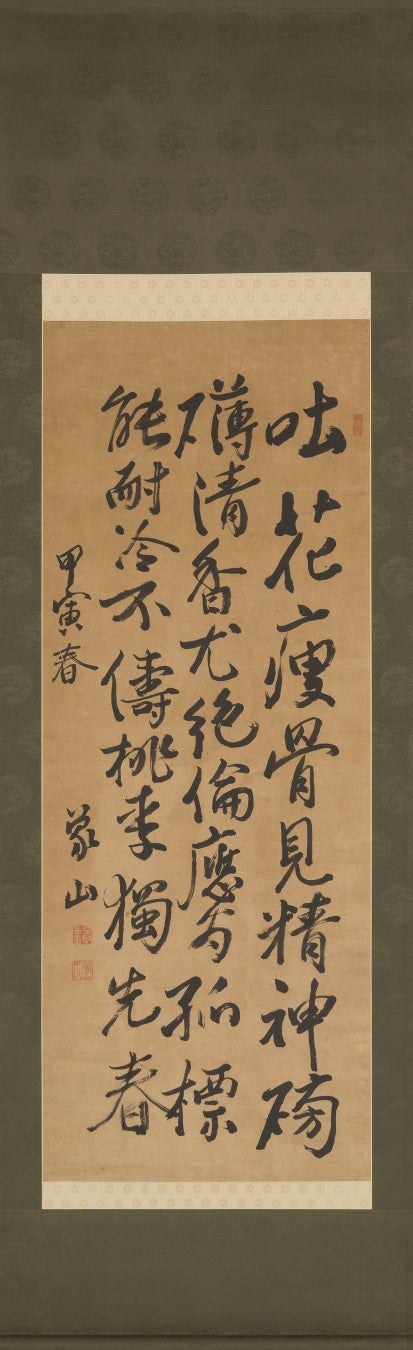 吐花瘦骨見精神磅
礴清香尤絶倫應為孤標
能耐冷不儔桃李獨先春
甲寅春
象山